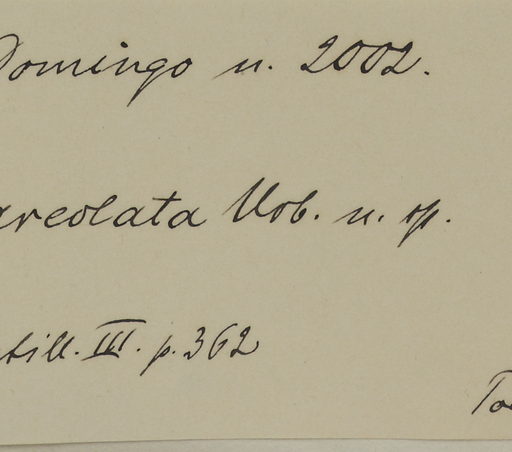 Domingo n. 2002.
areolata Urb. n. sp.
till. III. p. 362
To